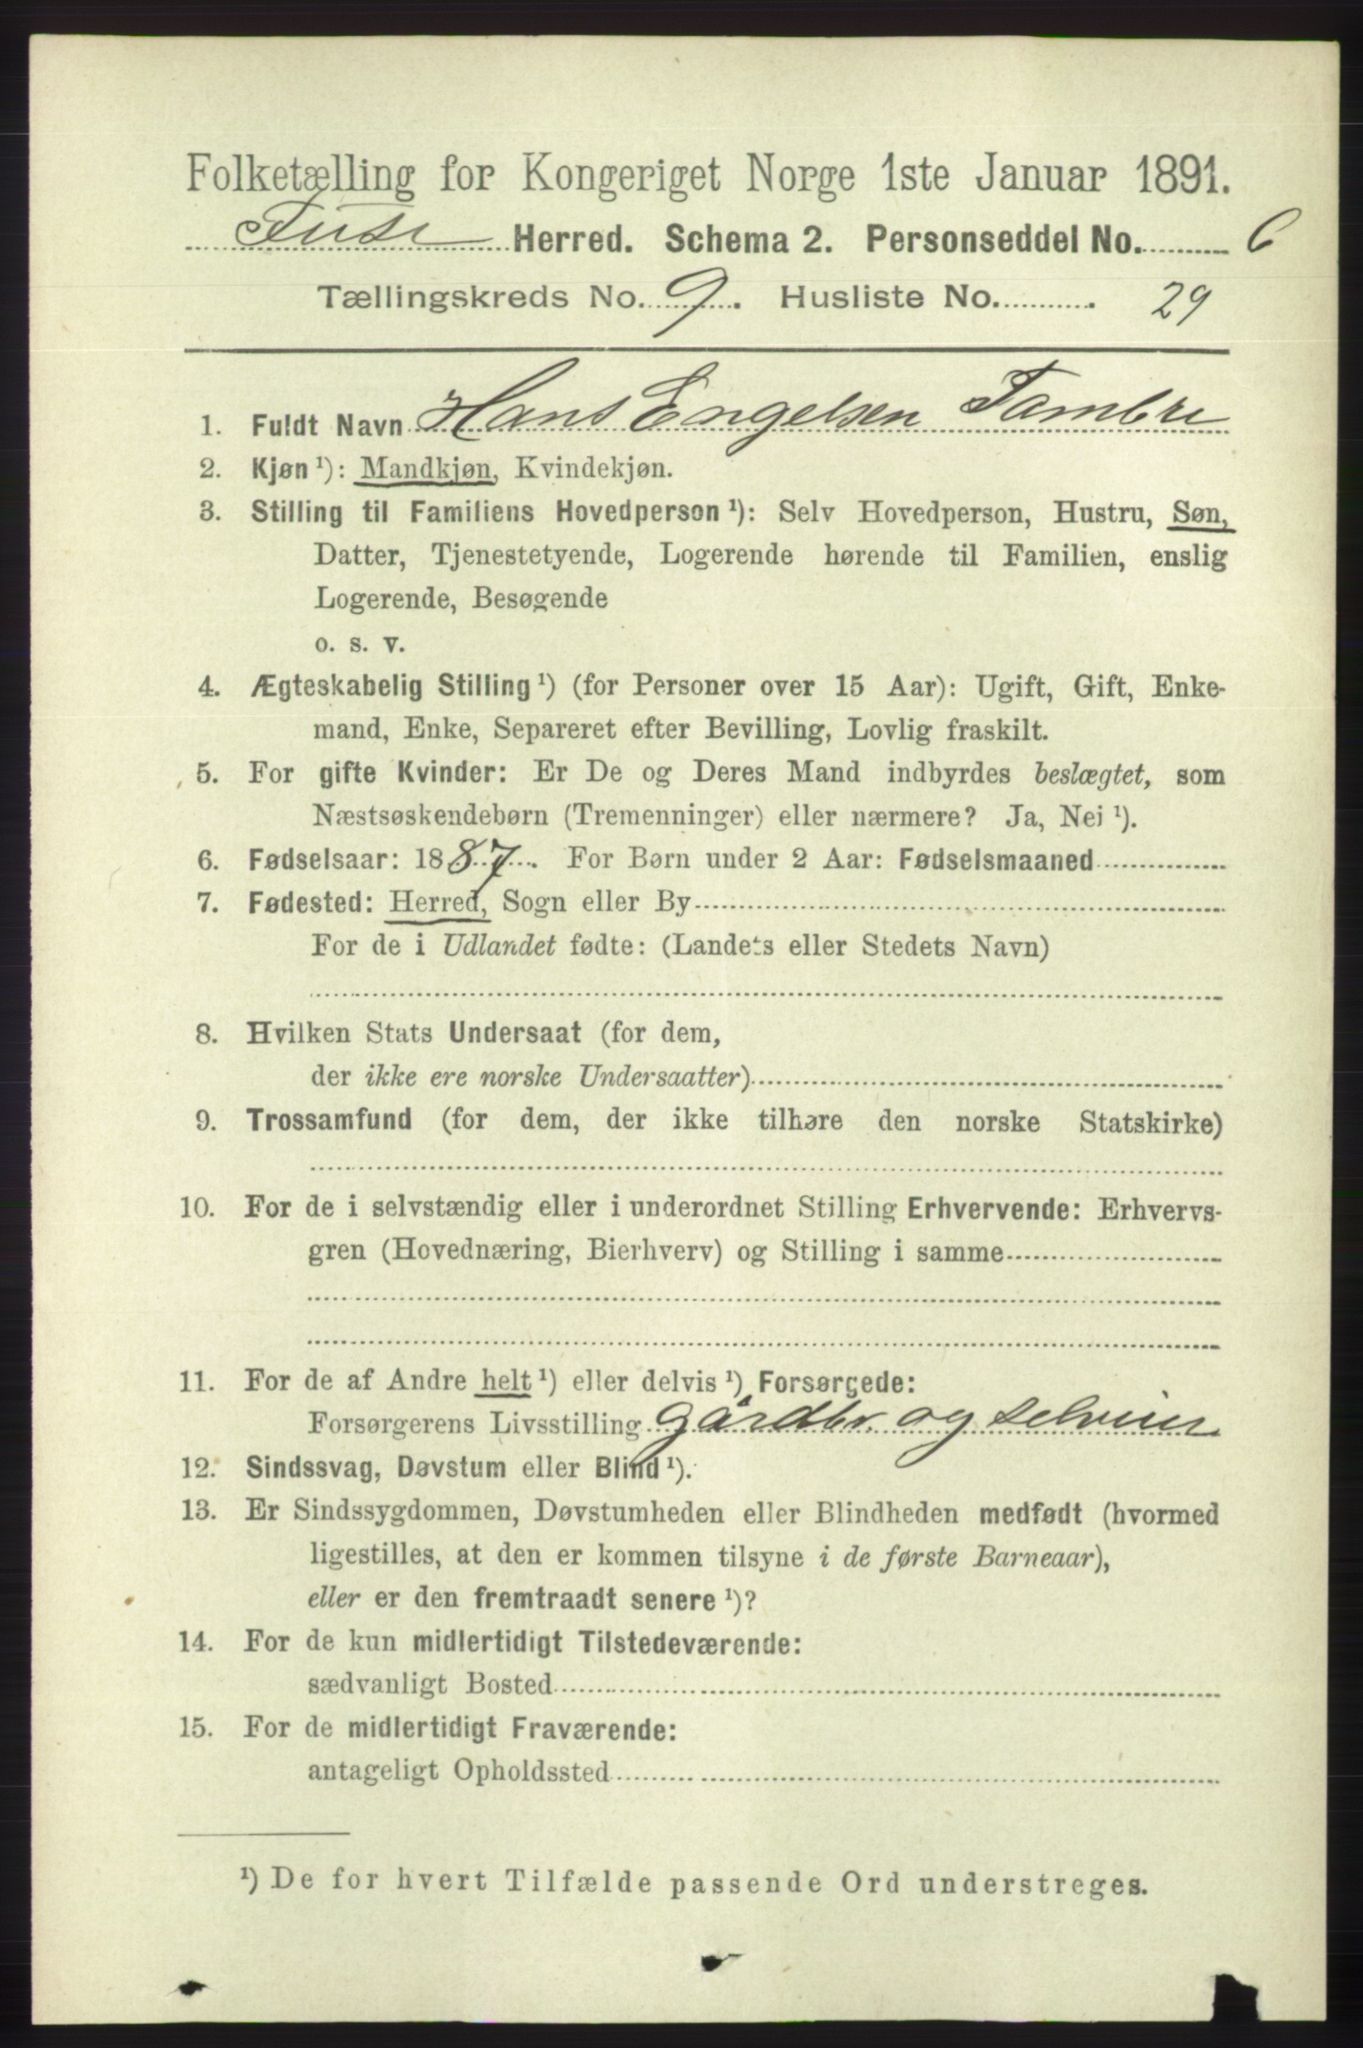 Folketælling for Kongeriget Norge 1ste Januar 1891.
Fuse Herred. Schema 2. Personseddel No. 6
Tællingskreds No. 9. Husliste No. . 29
1. Fuldt Navn Hans Engelsen Tombre
2. Kjøn ¹): Mandkjøn, Kvindekjøn.
3. Stilling til Familiens Hovedperson ¹): Selv Hovedperson, Hustru, Søn,
Datter, Tjenestetyende, Logerende hørende til Familien, enslig
Logerende, Besøgende
o. s. v.
4. Ægteskabelig Stilling ¹) (for Personer over 15 Aar): Ugift, Gift, Enke-
mand, Enke, Separeret efter Bevilling, Lovlig fraskilt.
5. For gifte Kvinder: Er De og Deres Mand indbyrdes beslægtet, som
Næstsøskendebørn (Tremenninger) eller nærmere? Ja, Nei ¹).
6. Fødselsaar: 1887. For Børn under 2 Aar: Fødselsmaaned
7. Fødested: Herred, Sogn eller By
For de i Udlandet fødte: (Landets eller Stedets Navn)
8. Hvilken Stats Undersaat (for dem,
der ikke ere norske Undersaatter)
9. Trossamfund (for dem, der ikke tilhøre den norske Statskirke)
10. For de i selvstændig eller i underordnet Stilling Erhvervende: Erhvervs-
gren (Hovednæring, Bierhverv) og Stilling i samme
11. For de af Andre helt ¹) eller delvis ¹) Forsørgede:
Forsørgerens Livsstilling gårdbr. og selveier
12. Sindssvag, Døvstum eller Blind ¹).
13. Er Sindssygdommen, Døvstumheden eller Blindheden medfødt (hvormed
ligestilles, at den er kommen tilsyne i de første Barneaar),
eller er den fremtraadt senere ¹)?
14. For de kun midlertidigt Tilstedeværende:
sædvanligt Bosted
15. For de midlertidigt Fraværende:
antageligt Opholdssted
¹) De for hvert Tilfælde passende Ord understreges.